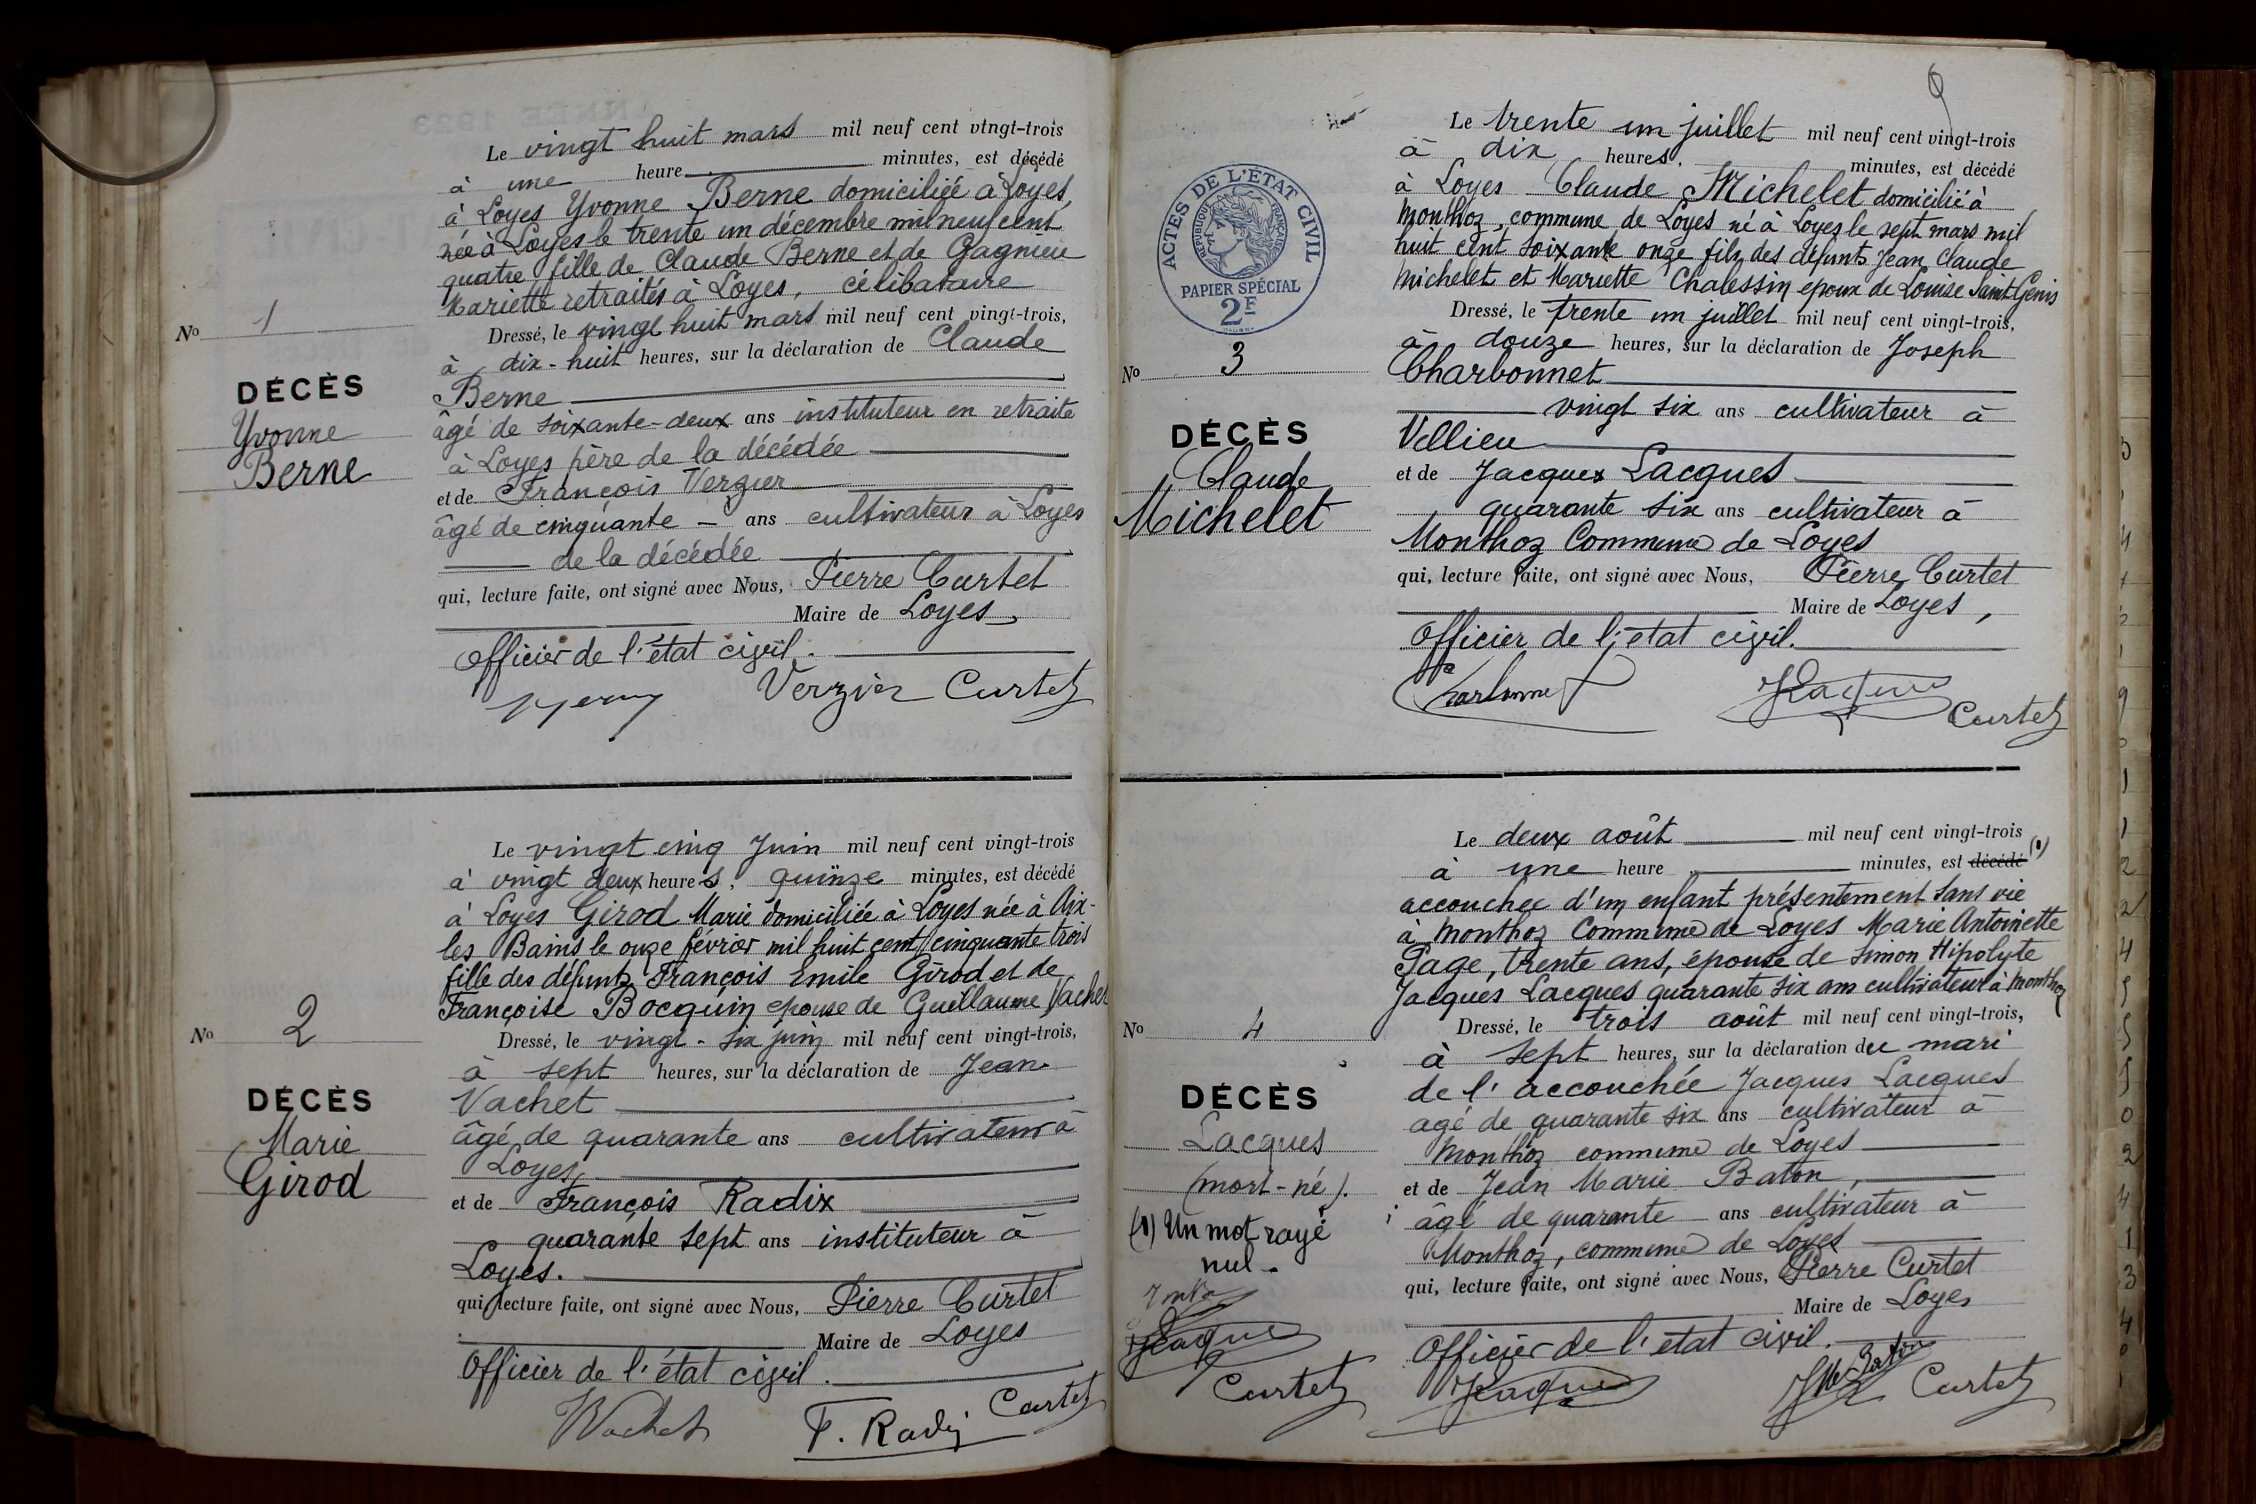 Le vingt huit mars mil neuf cent vingt-trois
à une heure minutes, est décédé
à Loyes Yvonne Berne domiciliée à Loyes,
née à Loyes le trente un décembre mil neuf cent
quatre fille de Claude Berne et de Gagnieu
Mariette retraités à Loyes, célibataire
Dressé, le vingt huit mars mil neuf cent vingt-trois,
à dix-huit heures, sur la déclaration de Claude
Berne
âgé de soixante-deux ans instituteur en retraite
à Loyes père de la décédée
et de François Verzier
âgé de cinquante - ans cultivateur à Loyes
de la décédée
qui, lecture faite, ont signé avec Nous, Pierre Curtet
Maire de Loyes,
Officier de l'état civil.
Verzier Curtet
No 1
DÉCÈS
Yvonne
Berne
Le vingt cinq Juin mil neuf cent vingt-trois
à vingt deux heures, quinze minutes, est décédé
à Loyes Girod Marie domiciliée à Loyes née à Aix-
les Bains le onze février mil huit cent cinquante trois
fille des défunts François Emile Girod et de
Françoise Bocquin epouse de Guillaume Vachet
Dressé, le vingt-six juin mil neuf cent vingt-trois,
à sept heures, sur la déclaration de Jean
Vachet
âgé de quarante ans cultivateur à
Loyes,
et de François Radix
quarante sept ans instituteur à
Loyes.
qui, lecture faite, ont signé avec Nous, Pierre Curtet
Maire de Loyes
Officier de l'état civil.
Vachet F. Radix Curtet
No 2
DÉCÈS
Marie
Girod
6
Le trente un juillet mil neuf cent vingt-trois
à dix heures. minutes, est décédé
à Loyes Claude Michelet domicilié à
Monthoz, commune de Loyes né à Loyes le sept mars mil
huit cent soixante onze fils des défunts Jean Claude
Michelet et Mariette Chalessin epoux de Louise Saint-Genis
Dressé, le trente un juillet mil neuf cent vingt-trois,
à douze heures, sur la déclaration de Joseph
Charbonnet
vingt six ans cultivateur à
Villieu
et de Jacques Lacques
quarante six ans cultivateur à
Monthoz Commune de Loyes
qui, lecture faite, ont signé avec Nous, Pierre Curtet
Maire de Loyes,
Officier de l'état civil.
Charbonnet JLacques Curtet
ACTES DE L'ETAT CIVIL
REPUBLIQUE FRANÇAISE
PAPIER SPÉCIAL
2F
No 3
DÉCÈS
Claude
Michelet
Le deux août mil neuf cent vingt-trois
à une heure minutes, est décédé (1)
accouchée d'un enfant présentement sans vie
à Monthoz Commune de Loyes Marie Antoinette
Page, trente ans, épouse de Simon Hipolyte
Jacques Lacques quarante six ans cultivateur à Monthoz
Dressé, le trois août mil neuf cent vingt-trois,
à sept heures, sur la déclaration du mari
de l'accouchée Jacques Lacques
agé de quarante six ans cultivateur à
Monthoz commune de Loyes
et de Jean Marie Baton,
âgé de quarante ans cultivateur à
Monthoz, commune de Loyes
qui, lecture faite, ont signé avec Nous, Pierre Curtet
Maire de Loyes
Officier de l'état civil.
JLacques JM Baton Curtet
No 4
DÉCÈS
Lacques
(mort-né).
(1) Un mot rayé
nul.
JLacques
Curtet